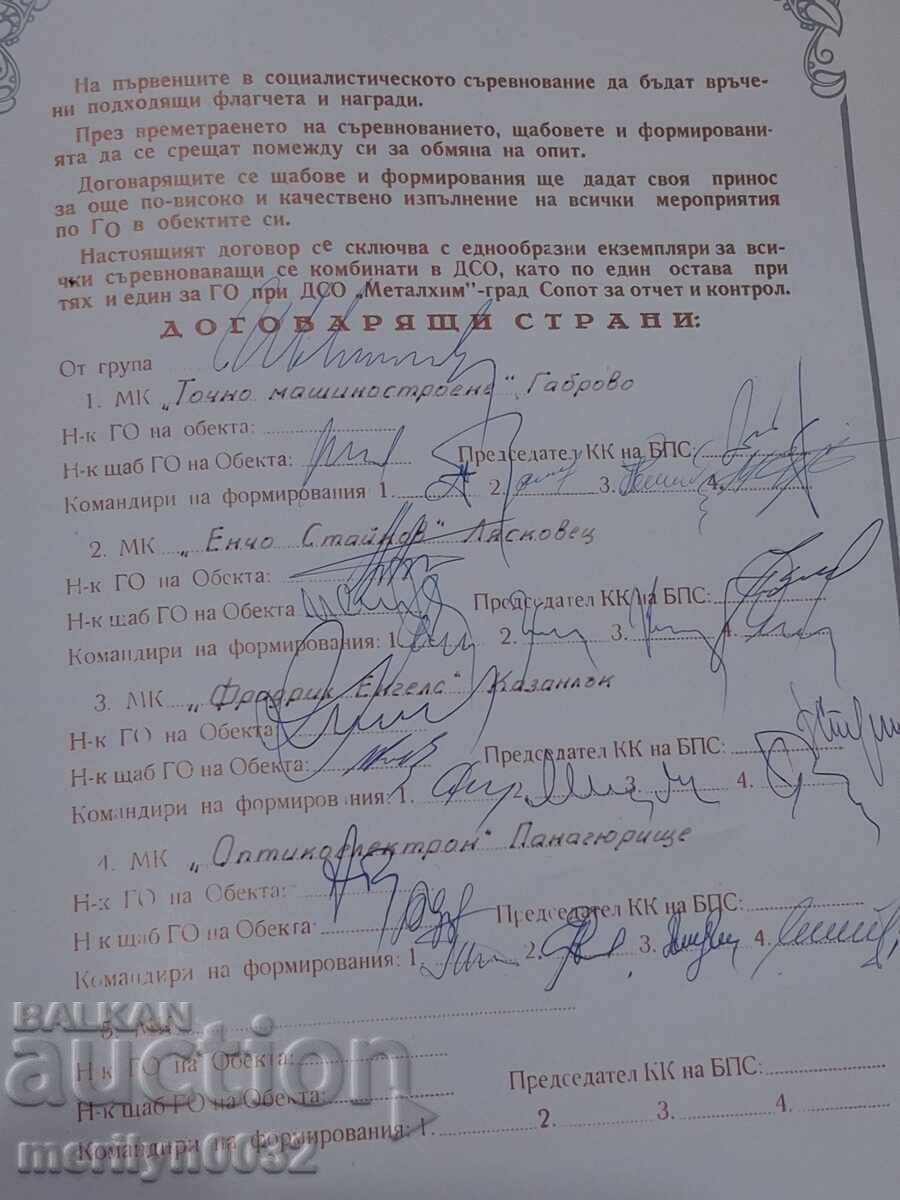 На първенците в социалистическото съревнование да бъдат връче-
ни подходящи флагчета и награди.
През времетраенето на съревнованието, щабовете и формировани-
ята да се срещат помежду си за обмяна на опит.
Договарящите се щабове и формирования ще дадат своя принос
за още по-високо и качествено изпълнение на всички мероприятия
по ГО в обектите си.
Настоящият договор се сключва с еднообразни екземпляри за вси-
чки съревноваващи се комбинати в ДСО, като по един остава при
тях и един за ГО при ДСО „Металхим"-град Сопот за отчет и контрол.
ДОГОВАРЯЩИ СТРАНИ:
От група
1. МК „Точно машиностроене" Габрово
Н-к ГО на обекта:
Н-к щаб ГО на Обекта: Председател КК на БПС:
Командири на формирования 1. 2. 3. 4.
2. МК „Енчо Стайнов" Лясковец
Н-к ГО на Обекта:
Н-к щаб ГО на Обекта Председател КК на БПС:
Командири на формирования: 1. 2. 3. 4.
3. МК „Фрадрик Енгелс" Казанлък
Н-к ГО на Обекта:
Н-к щаб ГО на Обекта: Председател КК на БПС:
Командири на формирования: 1. 2. 3. 4.
4. МК „Оптикоелектрон" Панагюрище
Н-к ГО на Обекта:
Н к щаб ГО на Обекта: Председател КК на БПС:
Командири на формирования: 1. 2. 3. 4.
5. МК
Н-к ГО на Обекта:
Н-к щаб ГО на Обекта: Председател КК на БПС:
Командири на формирования: 1. 2. 3. 4.
BALKAN
auction
merilyn0032